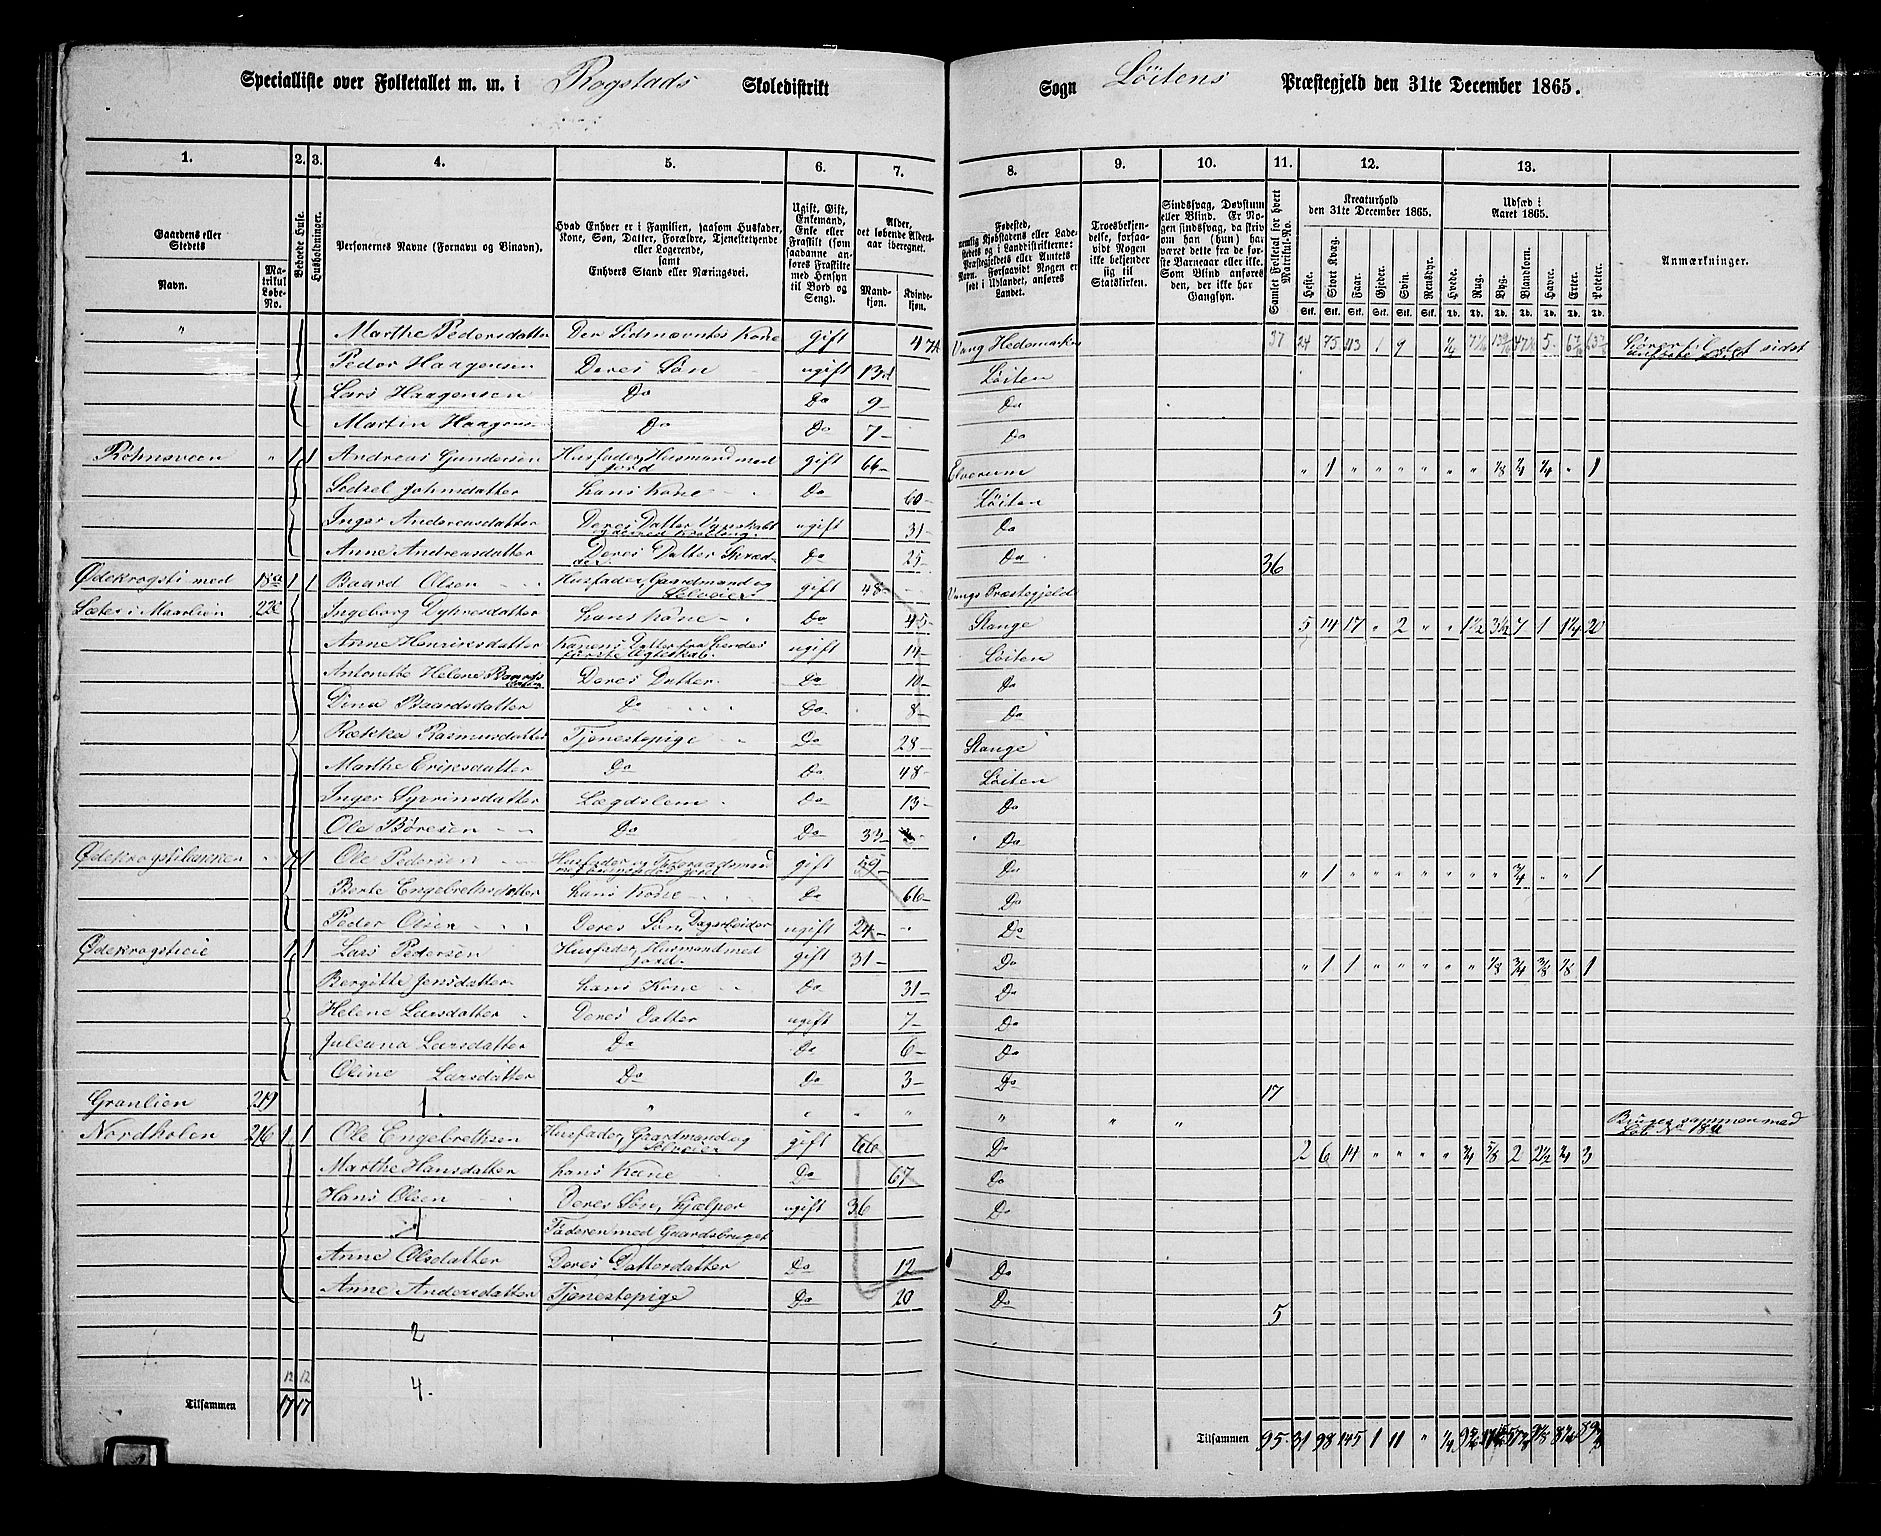 Specialliste over Folketallet m. m. i Rogstads Skoledistrikt Sogn Löitens Præstegjeld den 31te December 1865.
1. 2. 3. 4. 5. 6. 7. 8. 9. 10. 11. 12. 13.
Gaardens eller Stedets
Navn.
Matrikul Løbe-No.
Beboede Huse.
Husholdninger.
Personernes Navne (Fornavn og Binavn).
Hvad Enhver er i Familien, saasom Husfader, Kone, Søn, Datter, Forældre, Tjenestetyende eller Logerende, samt Enhvers Stand eller Næringsvei.
Ugift, Gift, Enkemand, Enke eller Fraskilt (som saadanne anføres Fraskilte med Hensyn til Bord og Seng).
Alder, det løbende Aldersaar iberegnet.
Mandkjøn. Kvindekjøn.
Fødested,
Trosbekjendelse, forsaavidt Nogen ikke bekjender sig til Statskirken.
Sindssvag, Døvstum eller Blind.
Samlet Folketal for hvert Matrikul-No.
Kreaturhold den 31te December 1865.
Udsæd i Aaret 1865.
Heste. Stort Kvæg. Faar. Gjeder. Svin. Rensdyr. Hvede. Rug. Byg. Blandkorn. Havre. Erter. Poteter.
Anmærkninger.
" Marthe Pedersdatter Den Sidsnævntes Kone gift 47 Vang Hedemarken 37 24 75 1 9
Peder Haagensen Deres Søn ugift 13 Löiten
Lars Haagensen Do Do 9 Do
Martin Haagens. Do Do 7 Do
Röhnsveen " 1 1 Andreas Gundersen Husfader, Husmand med Jord gift 66 Elverum " 1 " " " " " " 1/8 " 1
Sidsel Johnsdatter hans Kone Do 60 Löiten
Inger Andreasdatter Deres Datter ugift 31 Do
Anne Andreasdatter Deres Datter Do 25 Do 36
Ödekrogsti med 18a 1 1 Baard Olsen Husfader, Gaardmand og Selveier gift 48 Vangs Præstegjeld
Sæter i Maarlien 220 Ingeborg Dyhresdatter hans Kone Do 45 Stange 5 14 17 " 2 " " 1 1/2 3 1/2 7 1 1 1/4 20
Anne Henriksdatter Konens Datter fra hendes første Ægteskab. ugift 14 Löiten
Antonette Helene Baardsdatter Deres Datter Do 10 Do
Dina Baardsdatter Do Do 8 Do
Rækka Rasmusdatter Tjenestepige Do 28 Stange
Marthe Eriksdatter Do Do 48 Löiten
Inger Syvrinsdatter Lægdslem Do 13 Do
Ole Böresen Do Do 33 Do
Ödekrogstibakken 1 1 Ole Pedersen gift 59 Do " 1 " " " " " " " 3/4 " " 1
Berte Engebrethsdatter hans Kone Do 66 Do
Peder Olsen Deres Søn, Dagarbeider ugift 24 Do
Ödekrogstieie 1 1 Lars Pedersen Husfader, Husmand med Jord. gift 31 Do " 1 1 " " " " " 1/8 3/4 3/8 1/8 1
Bergitte Jensdatter hans Kone Do 31 Do
Helene Larsdatter Deres Datter ugift 7 Do
Juliana Larsdatter Do Do 6 Do
Oline Larsdatter Do Do 3 Do 17
Granlien 219 1. " " " " " " "
Nordholen 216 1 1 Ole Engebrethsen Husfader, Gaardmand og Selveier gift 66 Do 2 6 14 " " " " 3/4 5/8 2 2 1/2 3/4 3 Bruges sammen med Löb. No 18a
Marthe Hansdatter hans Kone Do 67 Do
Hans Olsen Deres Søn, hjælper ugift 36 Do
Faderen med Gaardsbruget
Anne Olsdatter Deres Datterdatter Do 12 Do
Anne Andersdatter Tjenestepige Do 20 Do 5
2
12 12
4.
Tilsammen 17 17
Tilsammen 95 31 98 145 1 11 " 1/4